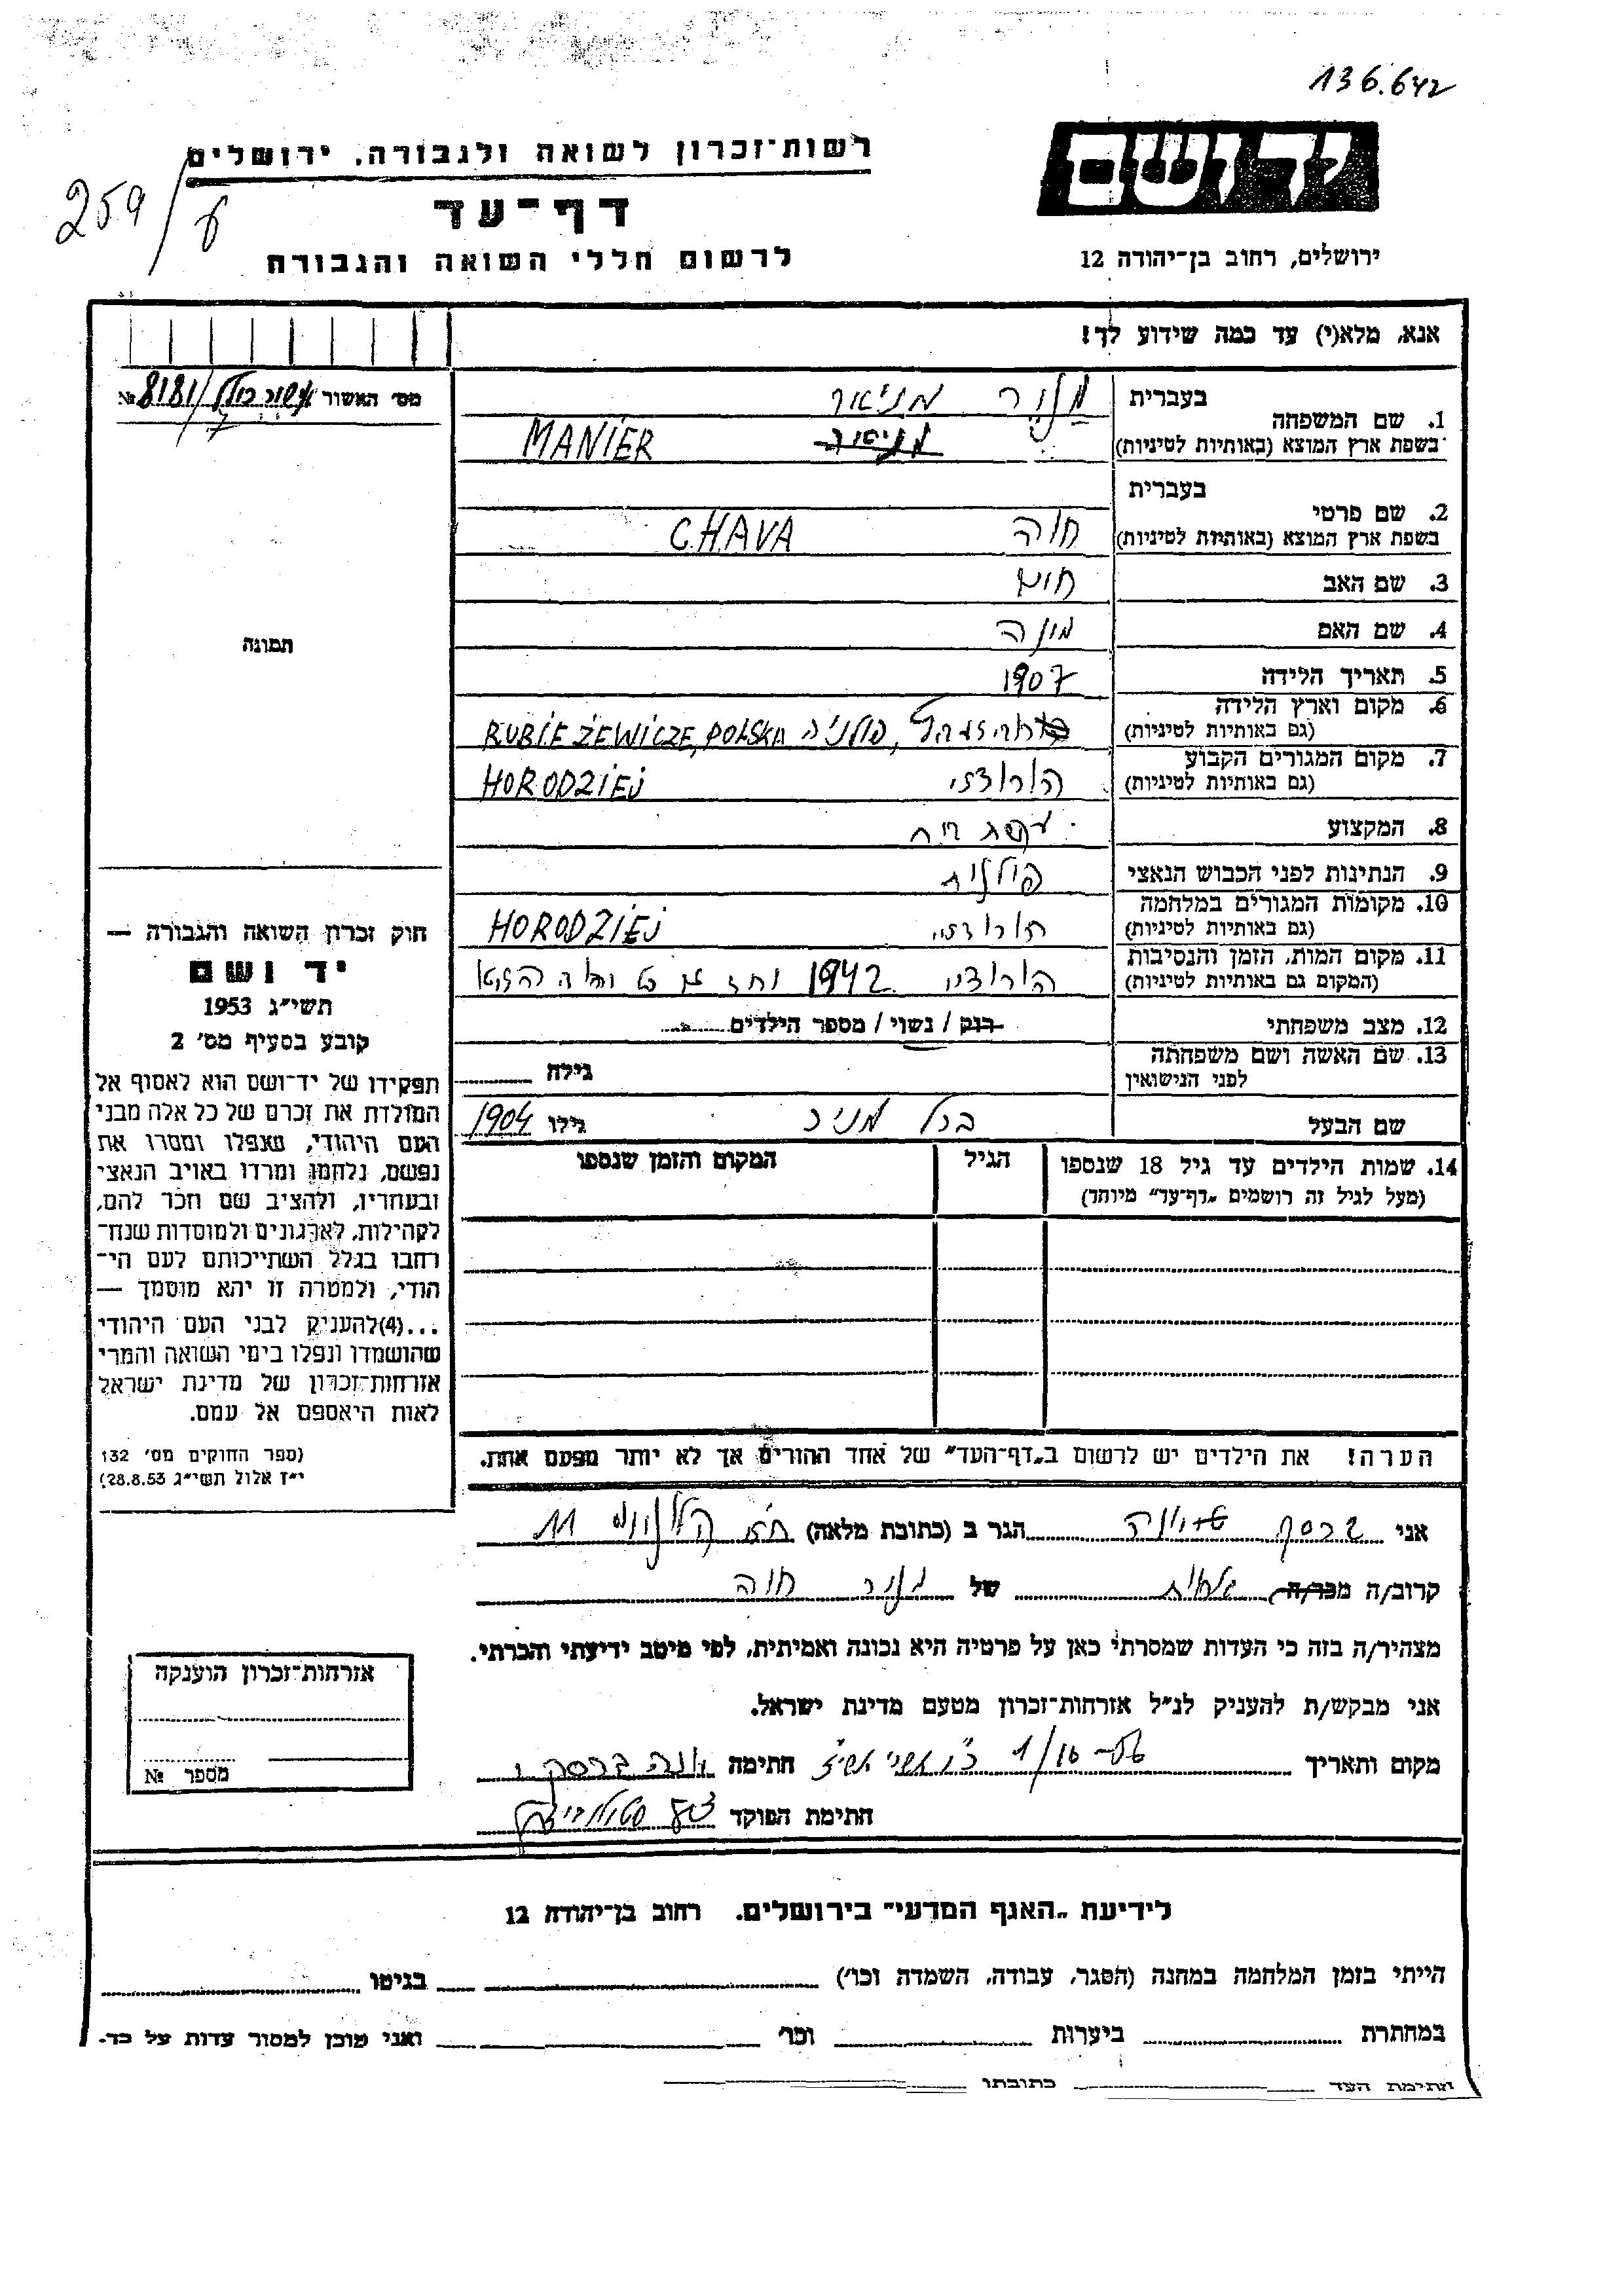 136.642
יד ושם
רשות־זכרון לשואה ולגבורה, ירושלים
259/
דף־עד
ירושלים, רחוב בן־יהודה 12
לרשום חללי השואה והגבורה
אנא, מלא(י) עד כמה שידוע לך!
מס׳ האשור № 8181/7
1. שם המשפחה
בעברית מניר מניאר
בשפת ארץ המוצא (באותיות לטיניות) MANIER
2. שם פרטי
בעברית
בשפת ארץ המוצא (באותיות לטיניות) חוה CHAVA
3. שם האב
4. שם האם מונה
5. תאריך הלידה 1907
6. מקום וארץ הלידה
(גם באותיות לטיניות) פולניה RUBIEŻEWICZE, POLSKA
7. מקום המגורים הקבוע
(גם באותיות לטיניות) הורודזי HORODZIEJ
8. המקצוע עקרת בית
9. הנתינות לפני הכבוש הנאצי פולנית
10. מקומות המגורים במלחמה
(גם באותיות לטיניות) הורודזיי HORODZIEJ
11. מקום המות, הזמן והנסיבות
(המקום גם באותיות לטיניות) הורודזיי 1942
12. מצב משפחתי רווק / נשוי / מספר הילדים
13. שם האשה ושם משפחתה
לפני הנישואין גילה
שם הבעל ברל מניר גילו 1904
14. שמות הילדים עד גיל 18 שנספו
(מעל לגיל זה רושמים „דף־עד״ מיוחד)
הגיל
המקום והזמן שנספו
הערה! את הילדים יש לרשום ב„דף־העד״ של אחד ההורים אך לא יותר מפעם אחת.
תמונה
חוק זכרון השואה והגבורה —
יד ושם
תשי״ג 1953
קובע בסעיף מס׳ 2
תפקידו של יד־ושם הוא לאסוף אל
המולדת את זכרם של כל אלה מבני
העם היהודי, שנפלו ומסרו את
נפשם, נלחמו ומרדו באויב הנאצי
ובעוזריו, ולהציב שם וזכר להם,
לקהילות, לארגונים ולמוסדות שנח־
רבו בגלל השתייכותם לעם הי־
הודי, ולמטרה זו יהא מוסמך —
...(4) להעניק לבני העם היהודי
שהושמדו ונפלו בימי השואה והמרי
אזרחות־זכרון של מדינת ישראל
לאות היאספם אל עמם.
(ספר החוקים מס׳ 132
י״ז אלול תשי״ג 28.8.53)
אני ברסקי הגר ב (כתובת מלאה) 11
קרוב/ה מכר/ה של מניר חוה
מצהיר/ה בזה כי העדות שמסרתי כאן על פרטיה היא נכונה ואמיתית, לפי מיטב ידיעתי והכרתי.
אני מבקש/ת להעניק לנ״ל אזרחות־זכרון מטעם מדינת ישראל.
מקום ותאריך 1/10-56 חתימה
חתימת הפוקד
אזרחות־זכרון הוענקה
מספר №
לידיעת „האגף המדעי״ בירושלים. רחוב בן־יהודה 12
הייתי בזמן המלחמה במחנה (הסגר, עבודה, השמדה וכו׳) בגיטו
במחתרת ביערות וכו׳ ואני מוכן למסור עדות על כך.
חתימת העד כתובתו